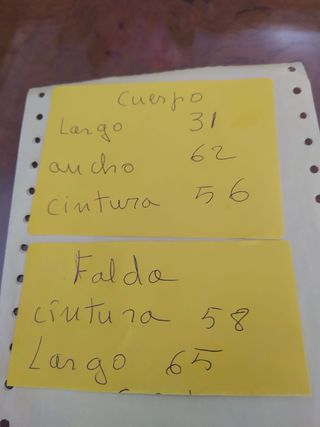 Cuerpo
Largo 31
ancho 62
cintura 56
Falda
cintura 58
Largo 65